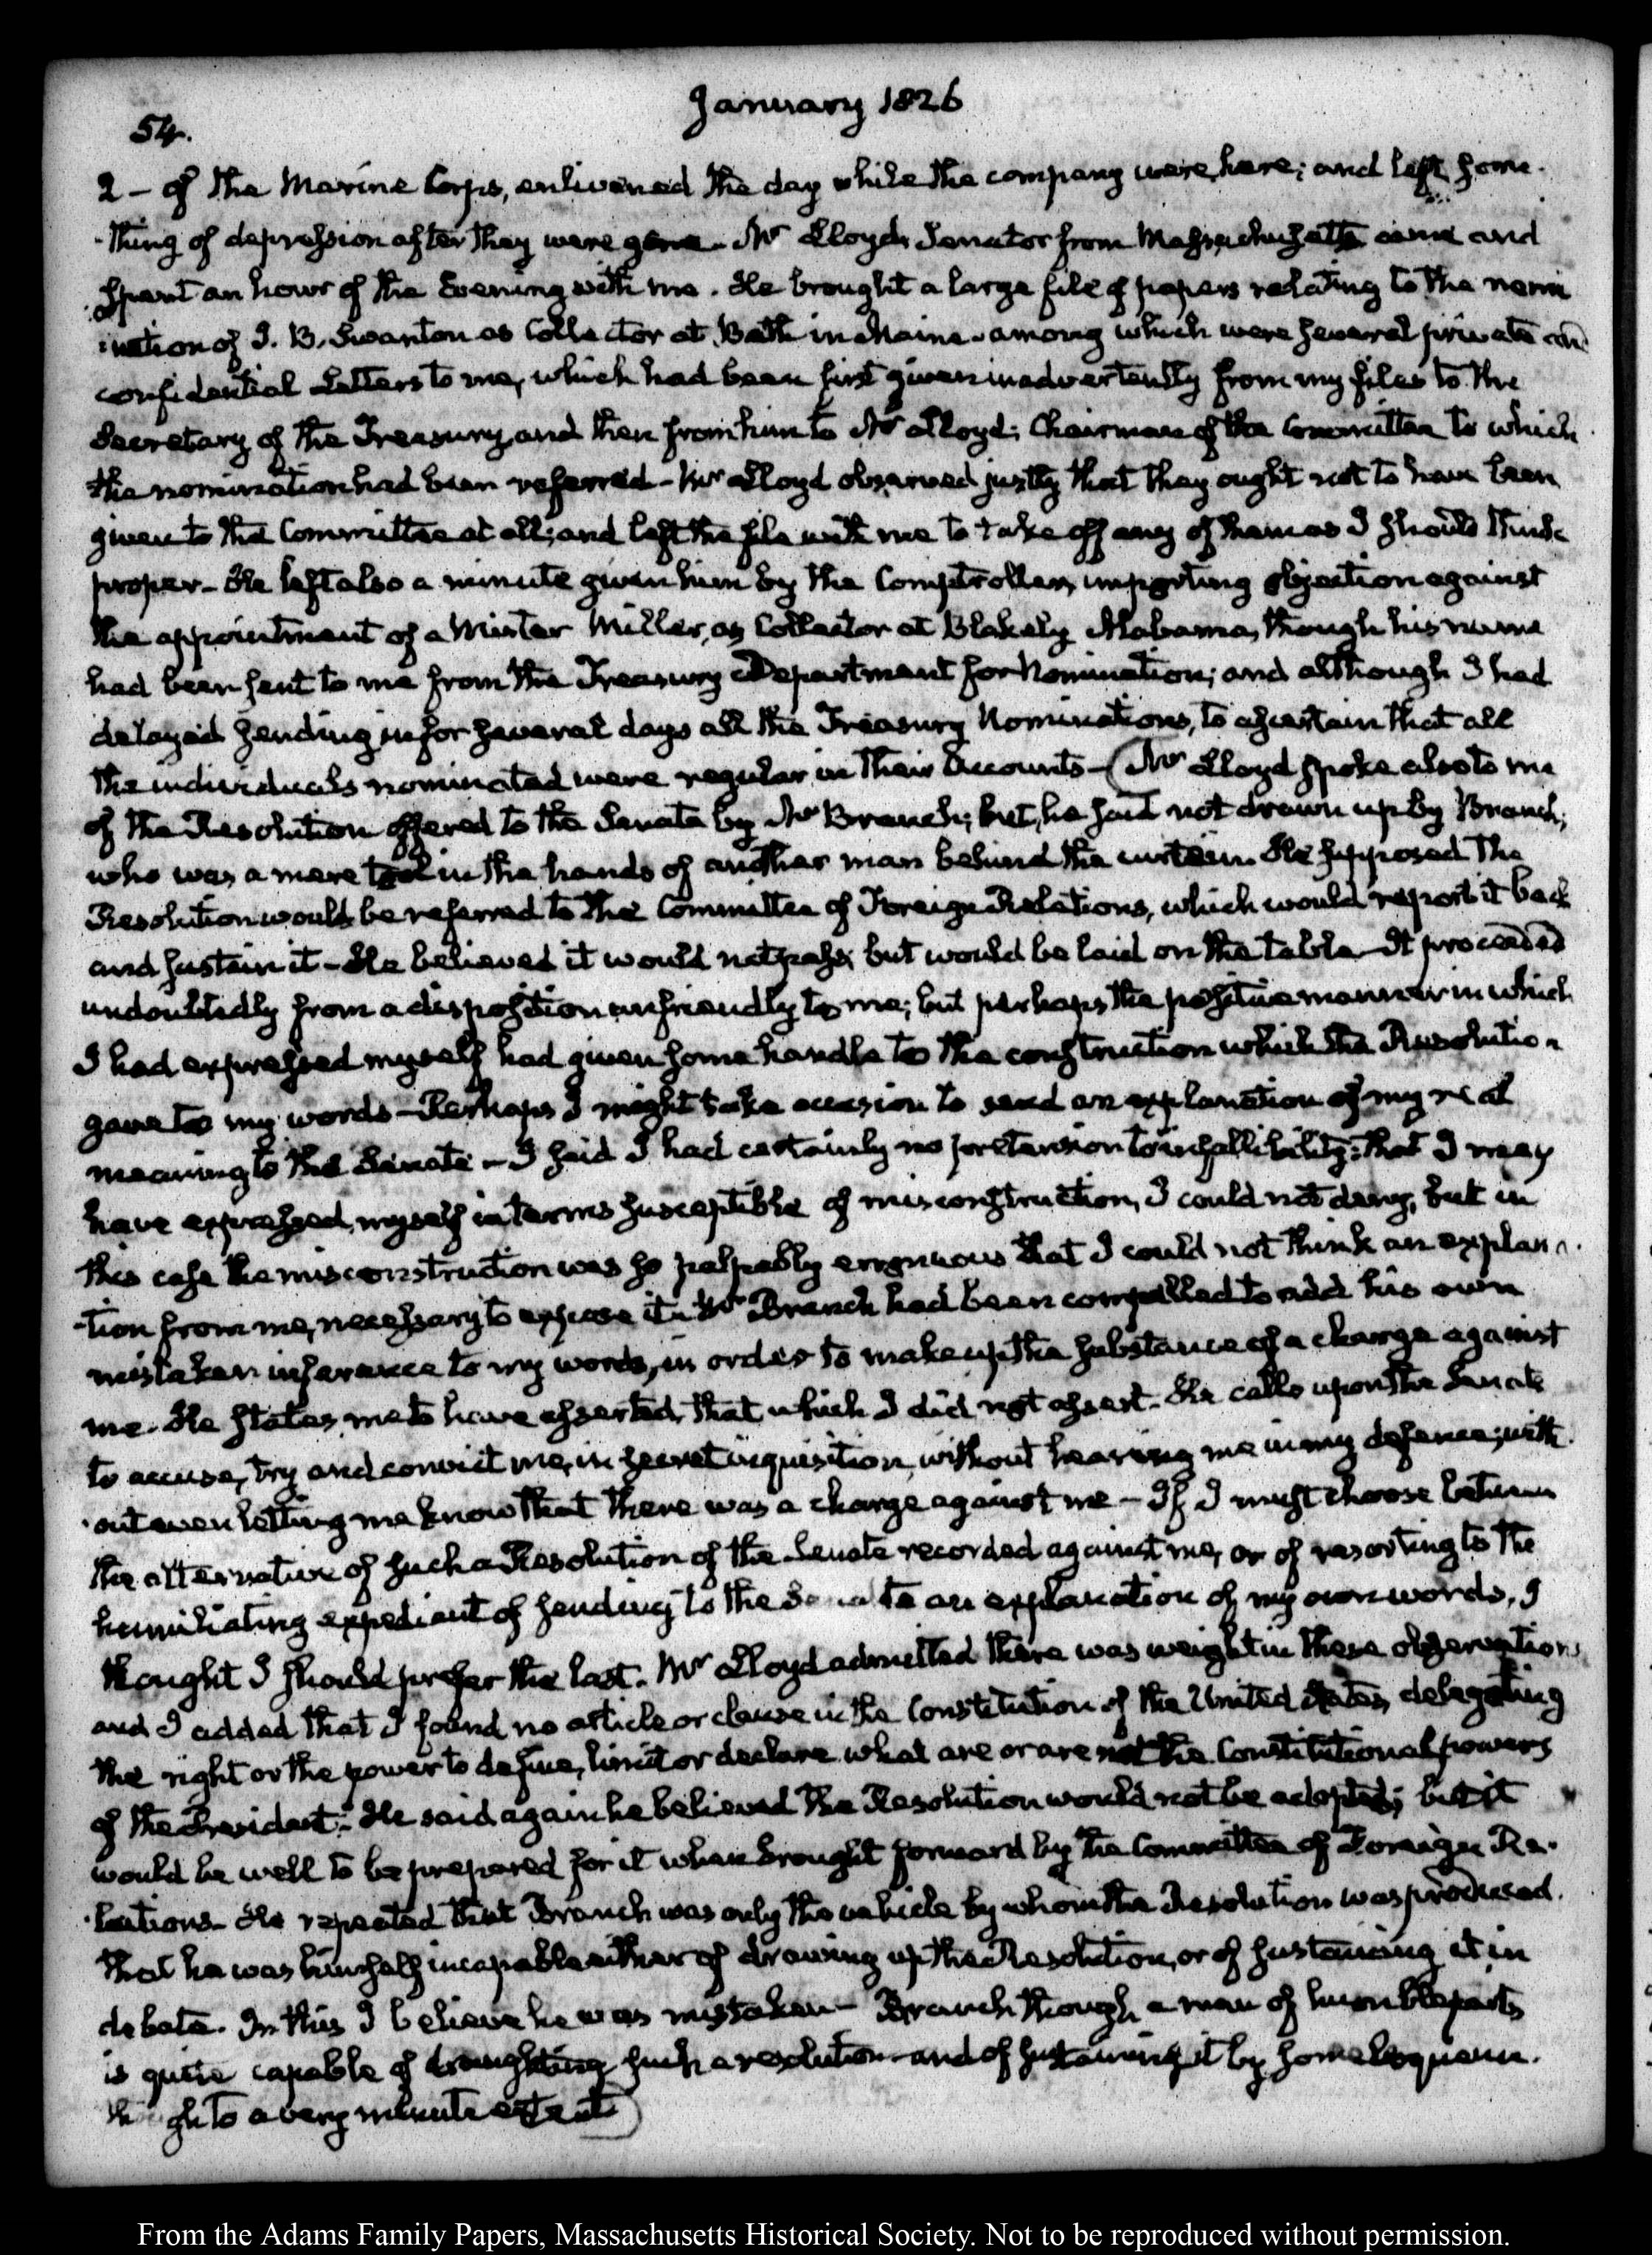 January 1826
54.
2 - of the Marine Corps, enlivened the day while the company were here; and left some-
-thing of depression after they were gone. Mr Lloyd, Senator from Massachusetts came and
spent an hour of the Evening with me. He brought a large file of papers relating to the nomi
ination of J. B. Swanton as Collector at Bath in Maine. among which were several private and
confidential Letters to me, which had been first given inadvertently from my files to the
Secretary of the Treasury, and then from him to Mr Lloyd; Chairman of the Committee to which
the nomination had been referred - Mr Lloyd observed justly that they ought not to have been
given to the Committee at all; and left the file with me to take off any of them as I should think
proper - He left also a minute given him by the Comptroller, importing objection against
the appointment of a Mister Miller, as Collector at Blakely Alabama, though his name
had been sent to me from the Treasury Department for Nomination; and although I had
delayed sending in for several days all the Treasury Nominations, to ascertain that all
the individuals nominated were regular in their Accounts - (Mr Lloyd spoke also to me
of the Resolution offered to the Senate by Mr Branch; but, he said not drawn up by Branch;
who was a mere tool in the hands of another man behind the curtain. He supposed the
Resolution would be referred to the Committee of Foreign Relations, which would report it back
and sustain it - He believed it would not pass; but would be laid on the table - It proceeded
undoubtedly from a disposition unfriendly to me; but perhaps the positive manner in which
I had expressed myself had given some handle to the construction which the Resolution
gave to my words - Perhaps I might take occasion to send an explanation of my real
meaning to the Senate - I said I had certainly no pretension to infallibility: that I may
have expressed myself in terms susceptible of misconstruction, I could not deny, but in
this case the misconstruction was so palpably erroneous that I could not think an explana-
-tion from me, necessary to expose it. Mr Branch had been compelled to add his own
mistaken inference to my words, in order to make up the substance of a charge against
me. He states me to have asserted, that which I did not assert. He calls upon the Senate
to accuse, try and convict me, in secret inquisition, without hearing me in my defence; with-
-out even letting me know that there was a charge against me - If I must choose between
the alternative of such a Resolution of the Senate recorded against me, or of resorting to the
humiliating expedient of sending to the Senate an explanation of my own words, I
thought I should prefer the last. Mr Lloyd admitted there was weight in these observations
and I added that I found no article or clause in the Constitution of the United States, delegating
the right or the power to define, limit or declare what are or are not the Constitutional powers
of the President. He said again he believed the Resolution would not be adopted; but it
would be well to be prepared for it when brought forward by the Committee of Foreign Re-
-lations. He repeated that Branch was only the vehicle by whom the Resolution was produced.
that he was himself incapable either of drawing up the Resolution, or of sustaining it in
debate. In this I believe he was mistaken - Branch though a man of humble parts
is quite capable of draughting such a resolution - and of sustaining it by some eloquence.
though to a very minute extent)
From the Adams Family Papers, Massachusetts Historical Society. Not to be reproduced without permission.